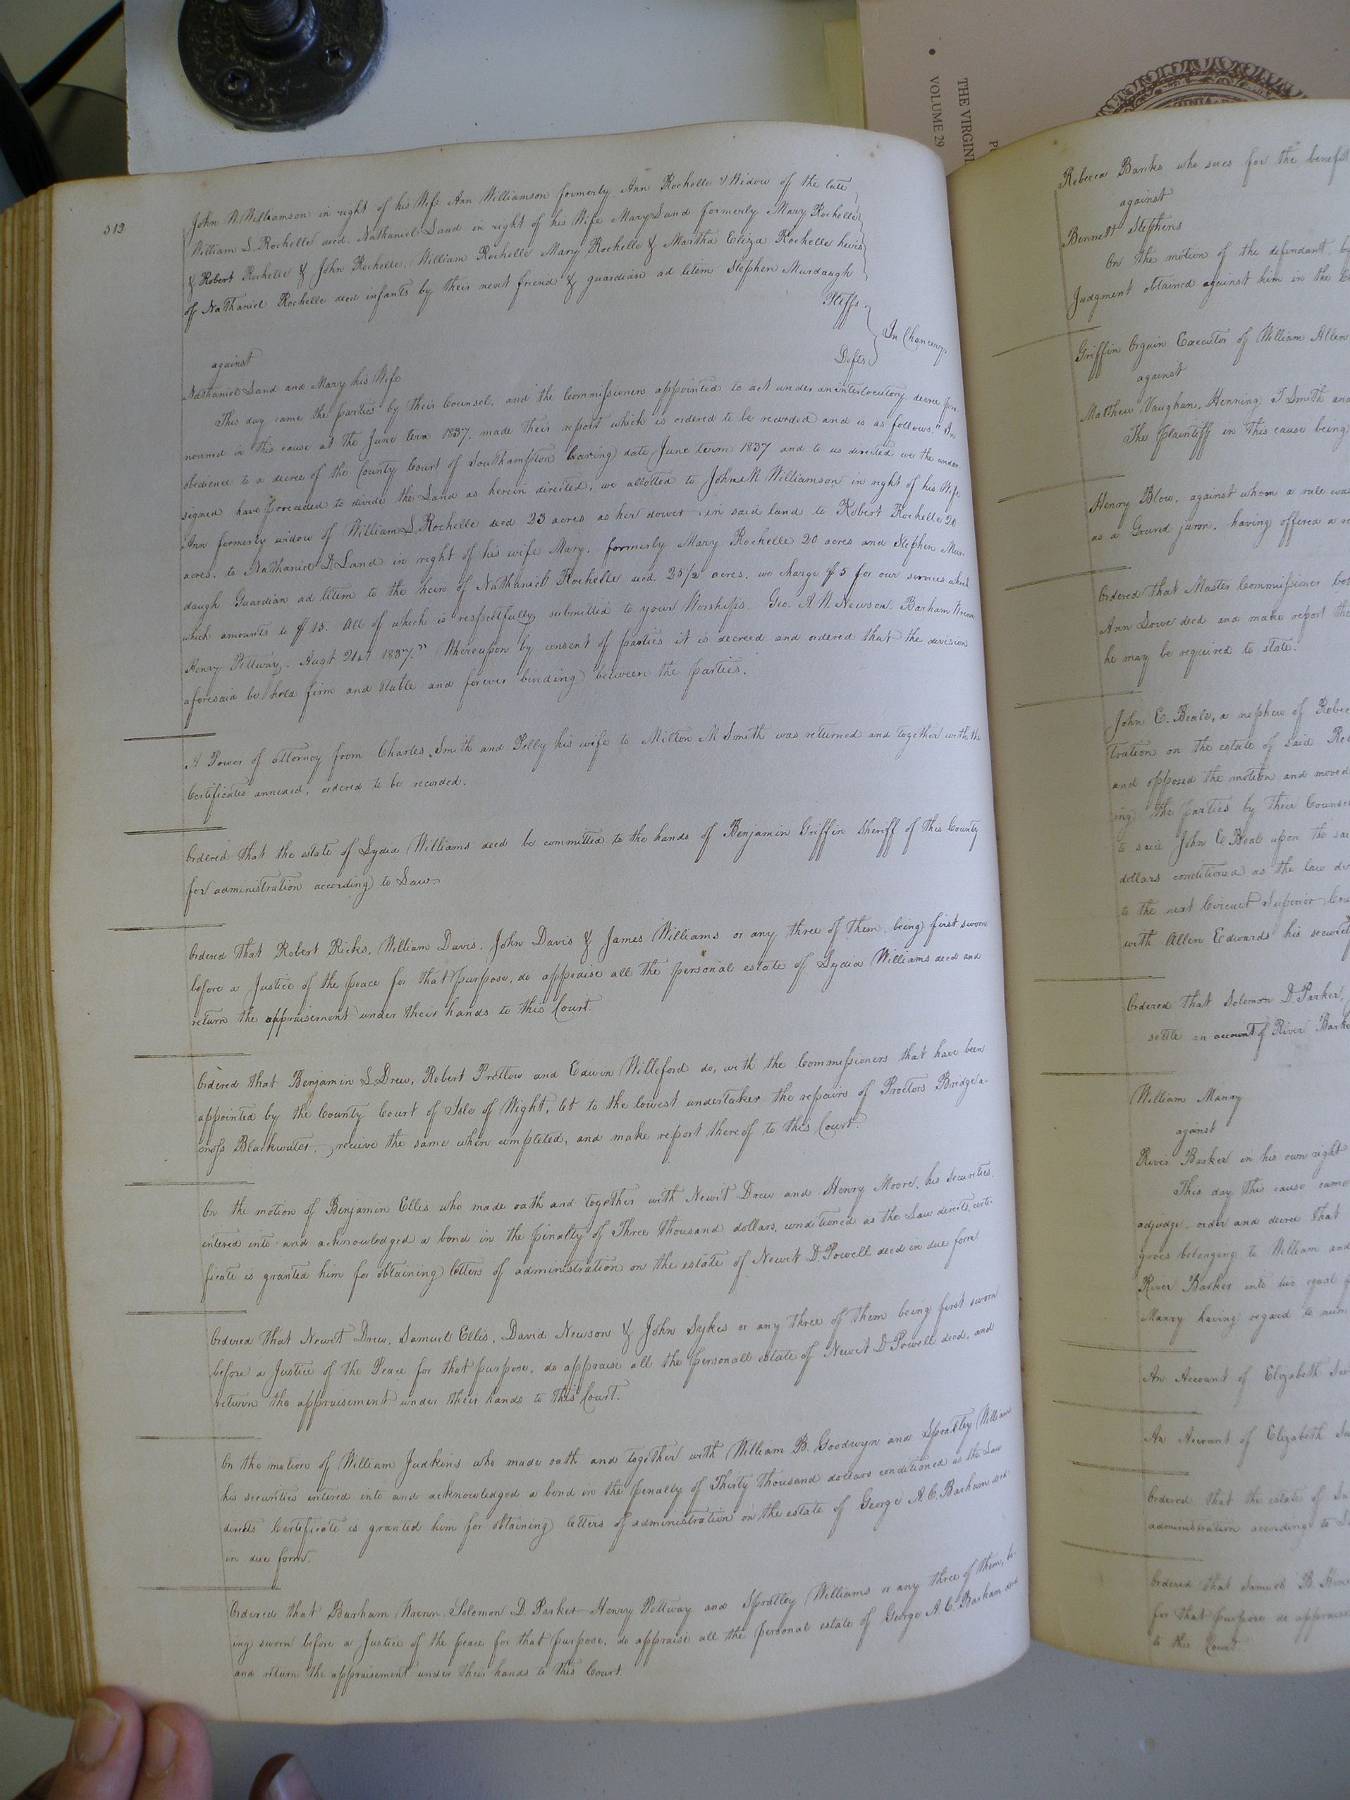 THE VIRGINI
VOLUME 29
312
John W Williamson in right of his Wife Ann Williamson formerly Ann Rochelle & Widow of the late
William S. Rochelle decd. Nathaniel Land in right of his Wife Mary Land formerly Mary Rochelle
& Robert Rochelle & John Rochelle, William Rochelle Mary Rochelle & Martha Eliza Rochelle heirs
of Nathaniel Rochelle decd infants by their next friend & guardian ad litem Stephen Murdaugh
Pltffs
In Chancery
against
Defts
Nathaniel Land and Mary his Wife
This day came the parties by their Counsel, and the Commissioners appointed to act under an interlocutory decree pro
nounced in this cause at the June term 1837, made their report which is ordered to be recorded and is as follows, "In
obedience to a decree of the County Court of Southampton bearing date June term 1837 and to us directed we the under
signed have proceeded to divide the Land as herein directed, we allotted to John W Williamson in right of his Wife
Ann formerly widow of William S Rochelle decd 23 acres as her dower in said land to Robert Rochelle 20
acres, to Nathaniel D Land in right of his wife Mary, formerly Mary Rochelle 20 acres and Stephen Mur-
daugh Guardian ad litem to the heirs of Nathaniel Rochelle decd. 25½ acres. we charge $5 for our services
which amounts to $15. All of which is respectfully submitted to your Worships. Geo. A. W. Newsom Barham Wrenn
Henry Pettway. Augt 21st 1837." Whereupon by consent of parties it is decreed and ordered that the division
aforesaid be held firm and stable and forever binding between the parties.
A Power of attorney from Charles Smith and Polly his wife to Milton M Smith was returned and together with the
Certificates annexed, ordered to be recorded.
Ordered that the estate of Lydia Williams decd be committed to the hands of Benjamin Griffin Sheriff of this County
for administration according to Law.
Ordered that Robert Ricks, William Davis, John Davis & James Williams or any three of them being first sworn
before a Justice of the peace for that purpose, do appraise all the personal estate of Lydia Williams decd and
return the appraisement under their hands to this Court.
Ordered that Benjamin L Drew, Robert Pretlow and Edwin Willeford do, with the Commissioners that have been
appointed by the County Court of Isle of Wight, let to the lowest undertaker the repairs of Proctors Bridge a-
cross Blackwater, receive the same when completed, and make report thereof to this Court.
On the motion of Benjamin Ellis who made oath and together with Newit Drew and Henry Moore, his securities
entered into and acknowledged a bond in the penalty of Three thousand dollars, conditioned as the Law directs, certi-
ficate is granted him for obtaining letters of administration on the estate of Newit D. Powell decd in due form
Ordered that Newit Drew, Samuel Ellis, David Newsom & John Sykes or any three of them being first sworn
before a Justice of the Peace for that purpose, do appraise all the personall estate of Newit D Powell decd, and
return the appraisement under their hands to this Court.
On the motion of William Judkins who made oath and together with William B. Goodwyn and Spratley Williams
his securities entered into and acknowledged a bond in the penalty of Thirty thousand dollars conditioned as the Law
directs Certificate is granted him for obtaining letters of administration on the estate of George A. C. Barham decd
in due form.
Ordered that Barham Wrenn, Solomon D. Parker Henry Pettway and Spratley Williams or any three of them, be-
ing sworn before a Justice of the peace for that purpose, do appraise all the personal estate of George A. C. Barham decd
and return the appraisement under their hands to this Court
Rebecca Banks who sues for the benefit
against
Bennett Stephens
On the motion of the defendant, by
Judgment obtained against him in the
Griffin Orgain Executor of William Allen
against
Matthew Vaughan, Henning T Smith and
The Plaintiff in this cause being
Henry Blow, against whom a rule was
as a Grand juror, having offered a
Ordered that Master Commissioner
Ann Lowe decd and make report the
he may be required to state.
John E. Beale, a nephew of
tration on the estate of said
and opposed the motion and moved
ing the parties by their Counsel
to said John E Beale upon the
dollars conditioned as the law
to the next Circuit Superior
with Allen Edwards his
Ordered that Solomon D. Parker,
settle an account of River
William Manry
against
River Barker in his own right
This day this cause came
adjudge, order and decree that
belonging to William and
River Barker into
Manry having regard to
An Account of Elizabeth
An Account of Elizabeth
Ordered that the estate of
administration according to
Ordered that Samuel B.
for that purpose do appraise
to this Court